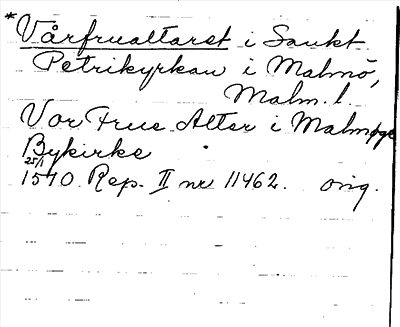 *Vårfrualtaret i Sankt
Petrikyrkan i Malmö,
Malm. l
Vor Frue Alter i Malmøge
Bykirke
25/1
1510 Rep. II nr 11462. orig.